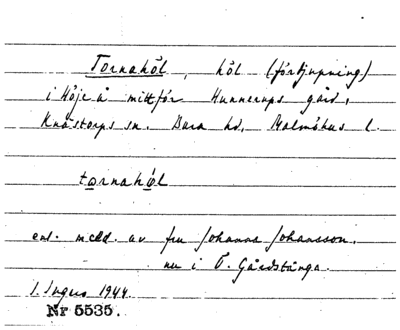 Tornahöl, höl (fördjupning)
i Höje å mittför Hunnerups gård,
Knästorps sn. Bara hd, Malmöhus l.
tornahöl
enl. medd. av fru Johanna Johansson,
nu i Ö. Gårdstånga.
I. Ingers 1944.
Nr 5535.